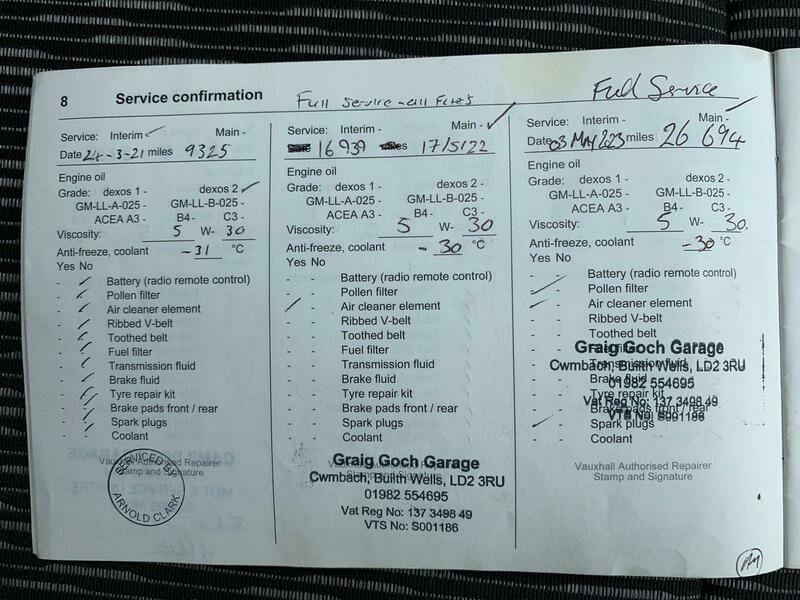 8 Service confirmation
Service: Interim - Main -
Date 24-3-21 miles 9325
Engine oil
Grade: dexos 1 - dexos 2 -
GM-LL-A-025 - GM-LL-B-025 -
ACEA A3 - B4 - C3 -
Viscosity: 5 W- 30
Anti-freeze, coolant -31 °C
Yes No
- - Battery (radio remote control)
- - Pollen filter
- - Air cleaner element
- - Ribbed V-belt
- - Toothed belt
- - Fuel filter
- - Transmission fluid
- - Brake fluid
- - Tyre repair kit
- - Brake pads front / rear
- - Spark plugs
- - Coolant
Vauxhall Authorised Repairer
Stamp and Signature
SERVICED BY
ARNOLD CLARK
Full Service - all
Service: Interim - Main -
16939 miles 17/5/22
Engine oil
Grade: dexos 1 - dexos 2 -
GM-LL-A-025 - GM-LL-B-025 -
ACEA A3 - B4- C3 -
Viscosity: 5 W- 30
Anti-freeze, coolant - 30 °C
Yes No
- - Battery (radio remote control)
- - Pollen filter
- Air cleaner element
- - Ribbed V-belt
- - Toothed belt
- - Fuel filter
- - Transmission fluid
- - Brake fluid
- - Tyre repair kit
- - Brake pads front / rear
- - Spark plugs
- - Coolant
Vauxhall Authorised Repairer
Graig Goch Garage
Cwmbach, Builth Wells, LD2 3RU
01982 554695
Vat Reg No: 137 3498 49
VTS No: S001186
Full Service
Service: Interim - Main -
Date 03 May 2023 miles 26 694
Engine oil
Grade: dexos 1 - dexos 2 -
GM-LL-A-025 - GM-LL-B-025 -
ACEA A3 - B4- C3 -
Viscosity: 5 W- 30.
Anti-freeze, coolant -30 °C
Yes No
- - Battery (radio remote control)
- Pollen filter
- Air cleaner element
- - Ribbed V-belt
- - Toothed belt
- - Fuel filter
Graig Goch Garage
- - Transmission fluid
Cwmbach, Builth Wells, LD2 3RU
- - Brake fluid
01982 554695
- - Tyre repair kit
Vat Reg No: 137 3498 49
- - Brake pads front / rear
VTS No: S001186
- Spark plugs
- - Coolant
Vauxhall Authorised Repairer
Stamp and Signature